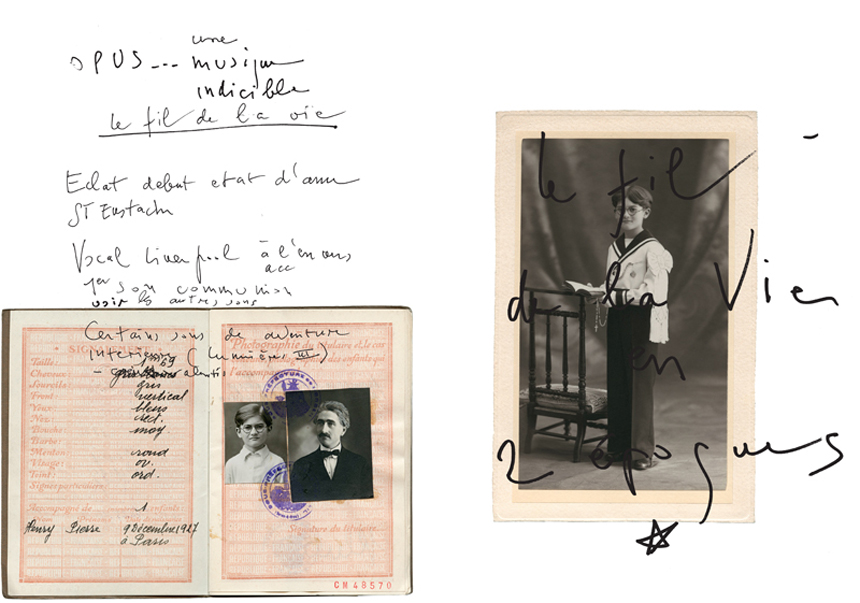 une
OPUS --- musique
indicible
le fil de la vie
Eclat debut etat d'ame
ST Eustache
Vocal Liverpool à l'envers
acc
1er son communion
voir les autres sons
Certains sons de aventure
interieure (lumières III)
ralentis
SIGNALEMENT
Taille:
Cheveux:
gris
Sourcils:
gris
Front:
vertical
Yeux:
bleus
Nez:
rect.
Bouche:
moy.
Barbe:
Menton:
rond
Visage:
ov.
Teint:
ord.
Signes particuliers:
Accompagné de 1 enfants:
Henry Pierre 9 Décembre 1927
à Paris
Photographie du titulaire et, le cas
des enfants qui
l'accompagnent
PRÉFECTURE
Signature du titulaire
GM48570
le fil
de la Vie
en
2 epoques